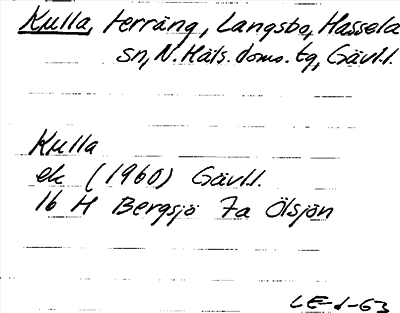 Kulla, terräng, Langsbo, Hassela
sn, N. Häls. doms. tg, Gävl.l.
Kulla
ek (1960) Gävl.l.
16 H Bergsjö 7a Ölsjön
LE-1-63